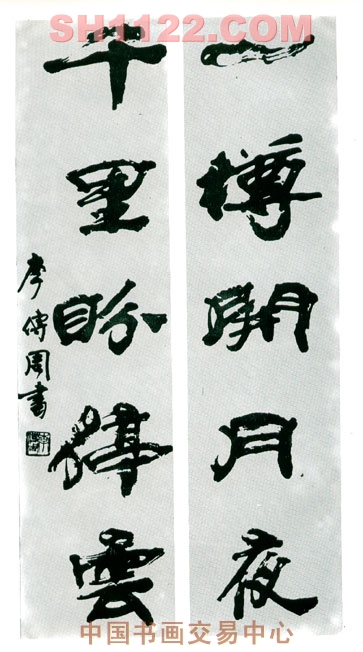 SH1122.COM
一樽開月夜
千里盼停雲
李傳周書
中国书画交易中心